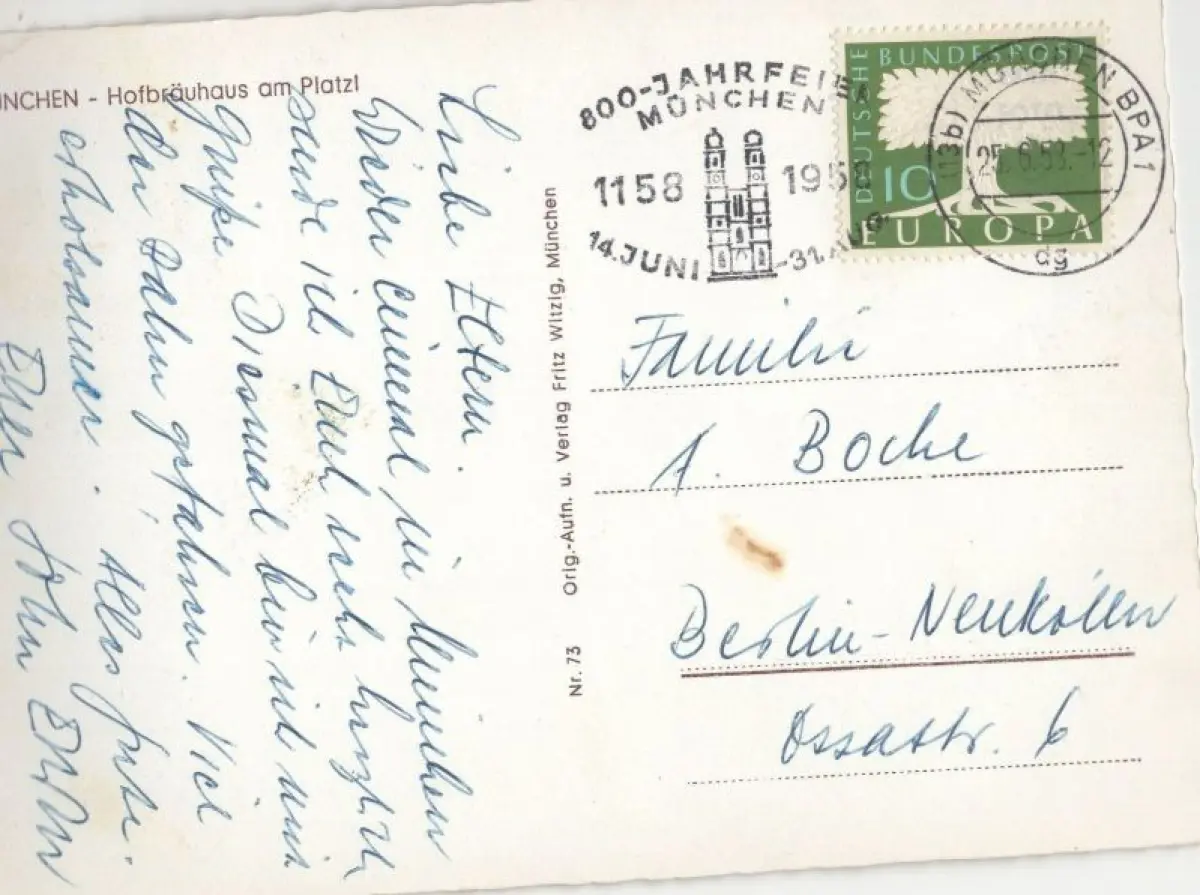 MÜNCHEN - Hofbräuhaus am Platzl
Liebe Eltern.
Wieder einmal in München
sende ich Euch recht herzliche
Grüße. Diesmal bin ich mit
der Bahn gefahren. Viel
erholsamer. Alles Gute.
Euer Sohn
Orig.-Aufn. u. Verlag Fritz Witzig, München
Nr. 73
800-JAHRFEIER
MÜNCHEN
1158 1958
14. JUNI - 31. AUG.
DEUTSCHE BUNDESPOST
10
EUROPA
(13b) MÜNCHEN BPA 1
25.6.58.-12
dg
Familie
A. Boche
Berlin-Neukölln
Ossastr. 6